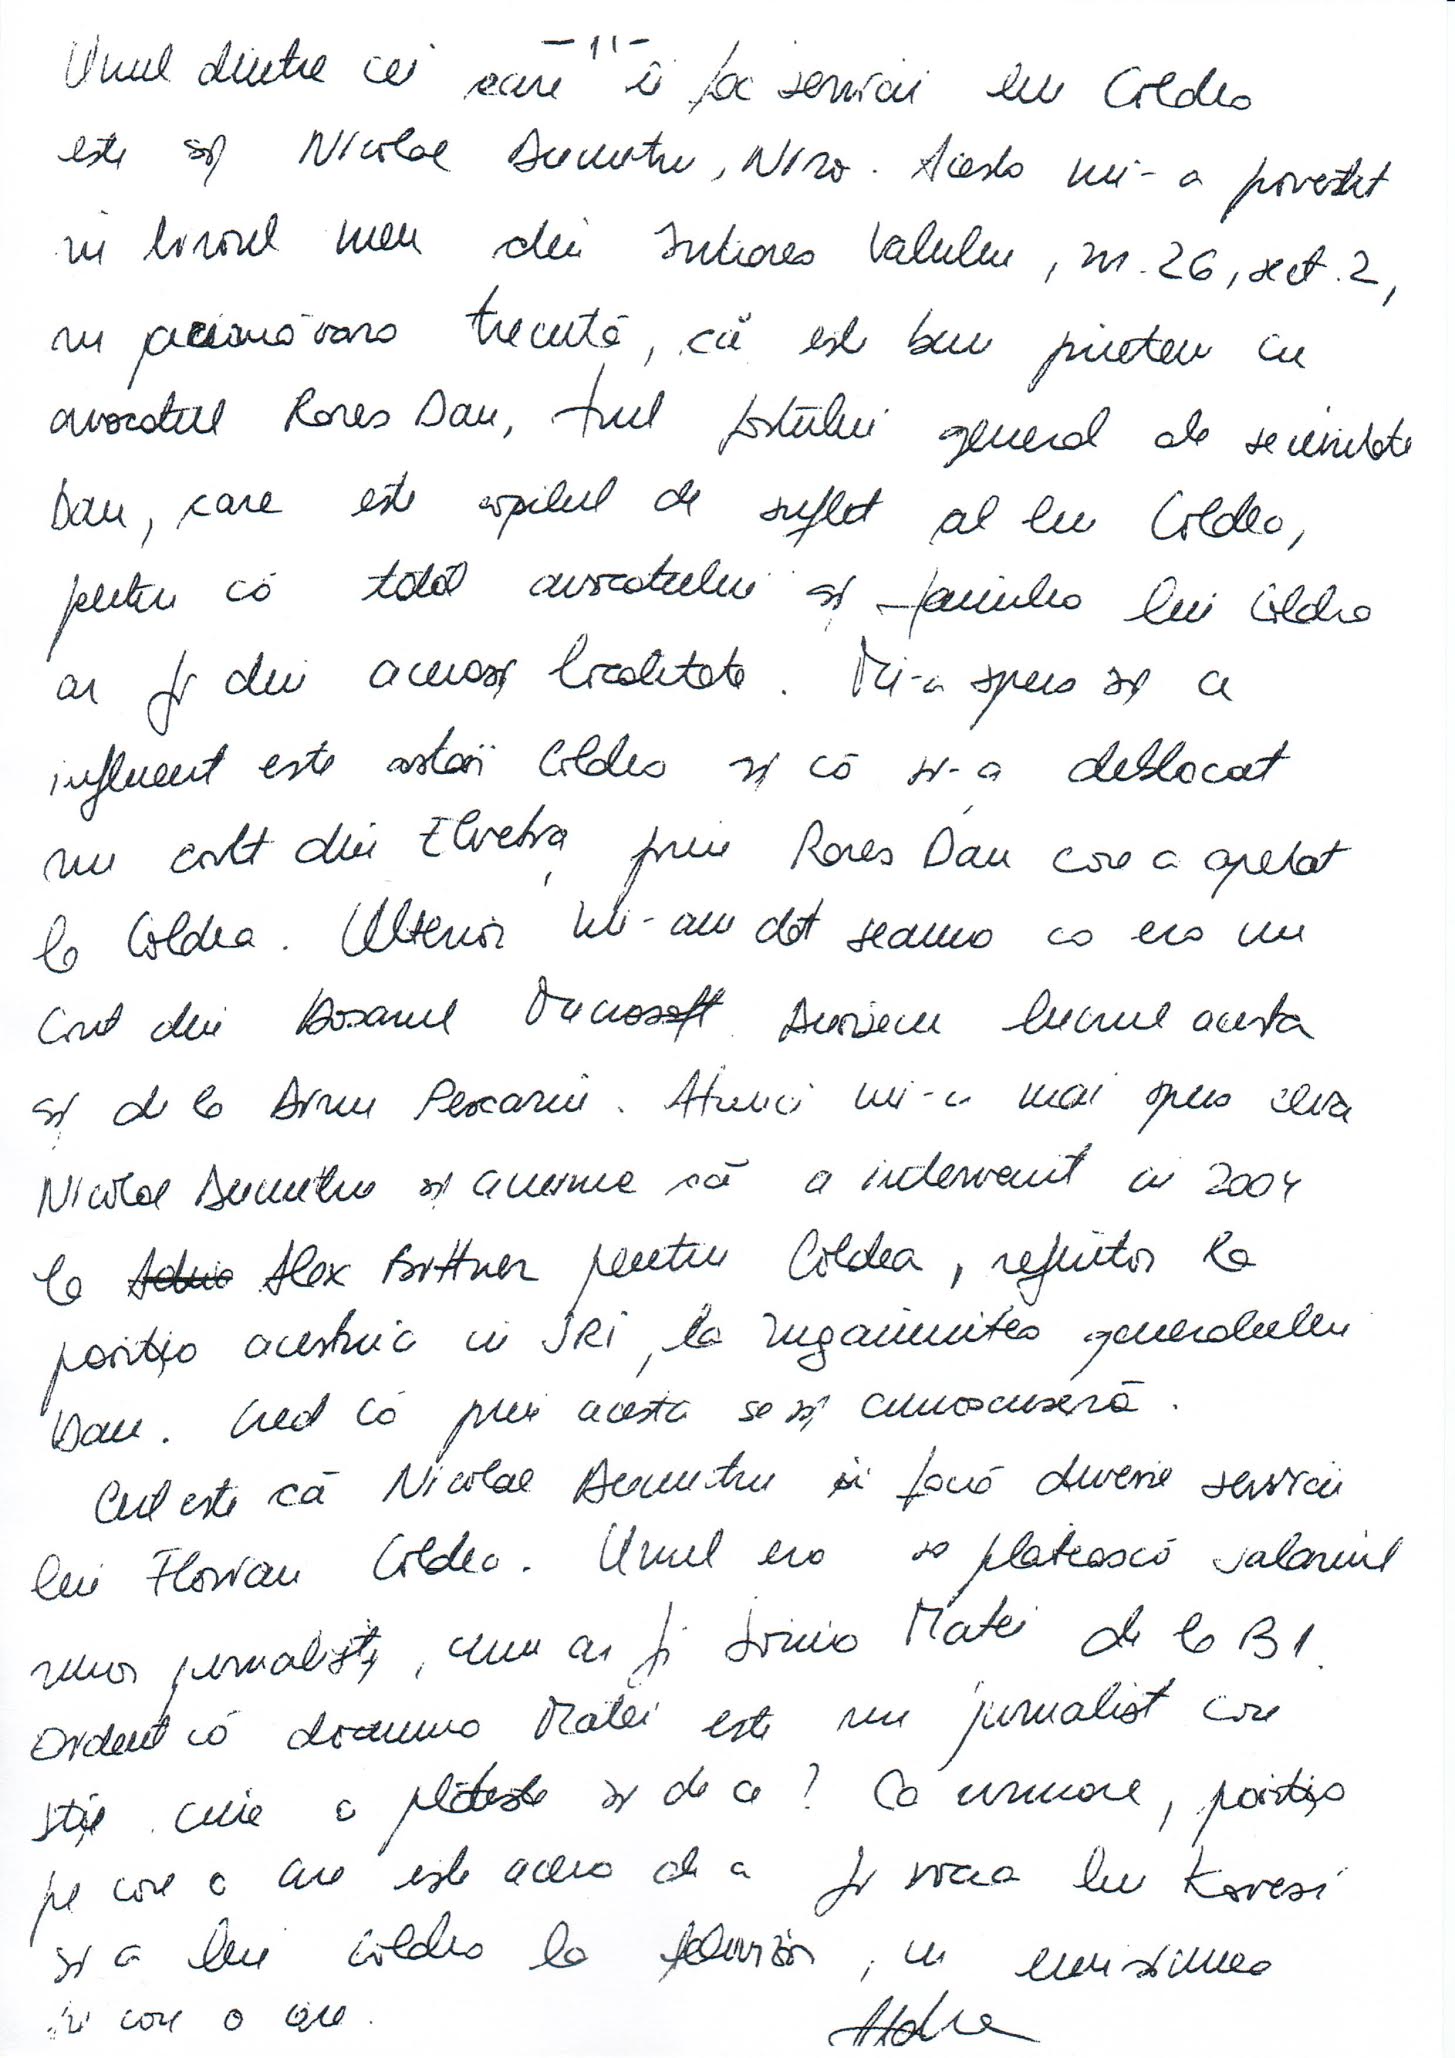 -11-
Unul dintre cei care îi fac servicii lui Coldea
este și Nicolae Dumitru, Niro. Acesta mi-a povestit
în biroul meu din Intrarea Vasului, nr. 26, sect. 2,
în primăvara trecută, că este bun prieten cu
avocatul Rares Dan, fiul fostului general de securitate
Dan, care este copilul de suflet al lui Coldea,
pentru că tatăl avocatului și familia lui Coldea
ar fi din aceeași localitate. Mi-a spus și ce
influent este astăzi Coldea și că și-a deblocat
un cont din Elveția, prin Rares Dan care a apelat
la Coldea. Ulterior mi-am dat seama ca era un
cont din Dosarul Microsoft. Auzisem lucrul acesta
și de la Dorin Pescariu. Atunci mi-a mai spus ceva
Nicolae Dumitru și anume că a intervenit in 2004
la Alex Bittner pentru Coldea, referitor la
poziția acestuia in SRI, la rugămintea generalului
Dan. Cred că prin acesta se și cunoscuseră.
Cert este că Nicolae Dumitru îi făcea diverse servicii
lui Florian Coldea. Unul era sa plătească salariul
unor jurnaliști, cum ar fi Sorina Matei de la B1.
Evident că doamna Matei este un jurnalist care
știe cine o plătește și de ce! Ca urmare, poziția
pe care o are este aceea de a fi vocea lui Kovesi
și a lui Coldea la televizor, in emisiunea
in care o are.